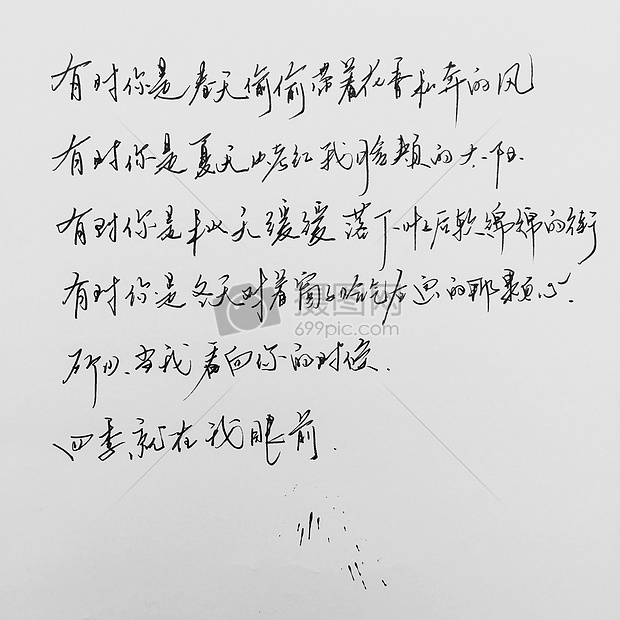 有时你是春天偷偷带着花香私奔的风
有时你是夏天晒红我脸颊的太阳
有时你是秋天缓缓落下叶后软绵绵的街
有时你是冬天对着窗口哈气在画的那颗心.
摄图网
699pic.com
所以、当我看向你的时候.
四季就在我眼前.